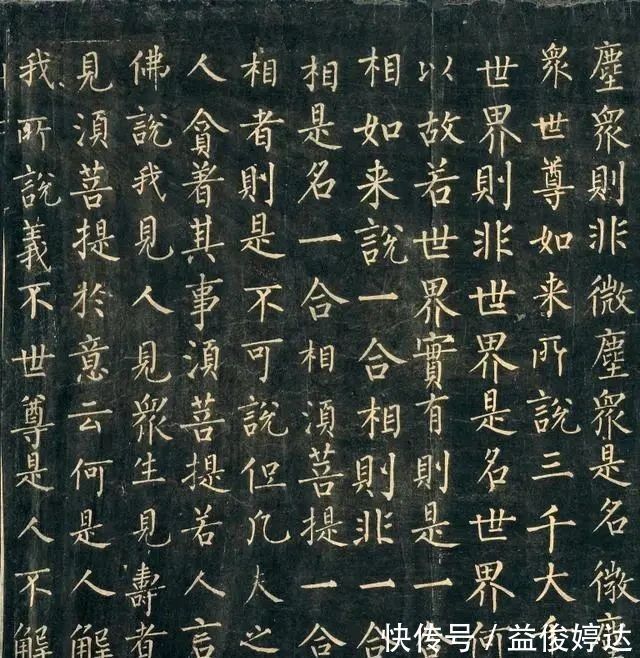 塵眾則非微塵眾是名微塵
眾世尊如来所說三千大千
世界則非世界是名世界何
以故若世界實有則是一
相如来說一合相則非一合
相是名一合相湏菩提一合
相者則是不可說但凡夫之
人貪著其事湏菩提若人言
佛說我見人見眾生見壽者
見湏菩提於意云何是人解
我所說義不世尊是人不解
快传号/益俊婷达